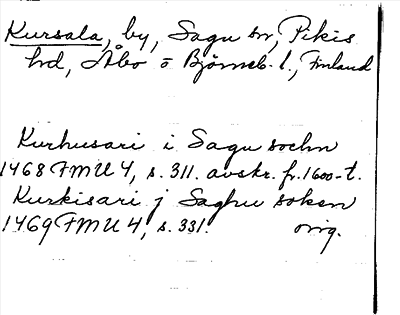 Kursala, by, Sagu sn, Pikis
hd, Åbo o Björneb. l., Finland
Kurhusari i Sagu sochn
1468 FMU 4, s. 311. avskr. fr. 1600-t.
Kurkisari j Saghu soken
1469 FMU 4, s. 331. orig.